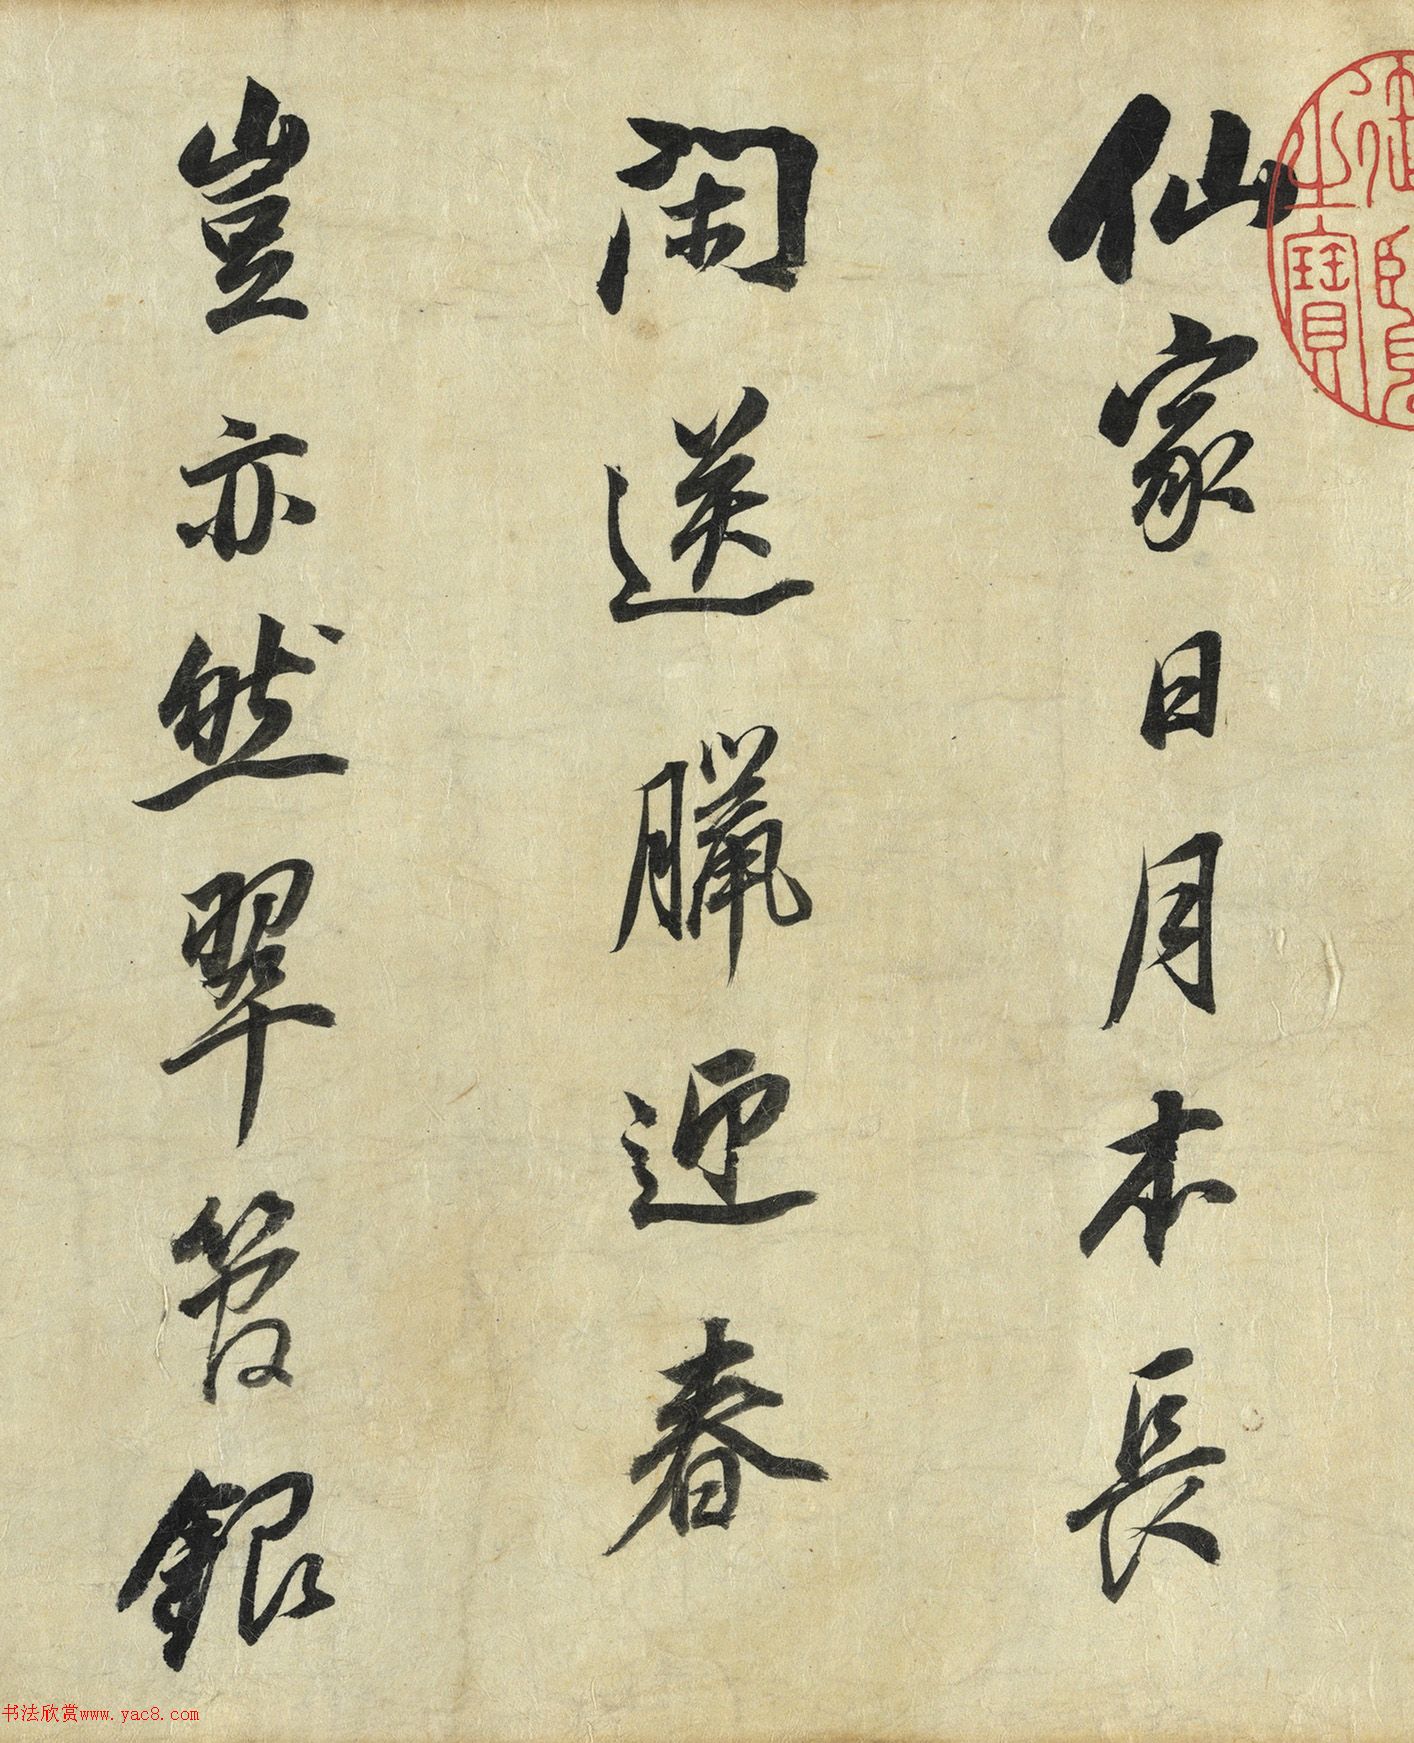 仙家日月本長
閑送臘迎春
豈亦然翠管銀
御覽之寶
书法欣赏www.yac8.com